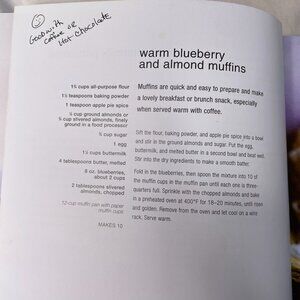 Good with
coffee or
Hot Chocolate
warm blueberry
and almond muffins
Muffins are quick and easy to prepare and make
a lovely breakfast or brunch snack, especially
when served with coffee.
1¾ cups all-purpose flour
1½ teaspoons baking powder
1 teaspoon apple pie spice
¾ cup ground almonds or
¾ cup slivered almonds, finely
ground in a food processor
¾ cup sugar
1 egg
1¼ cups buttermilk
4 tablespoons butter, melted
8 oz. blueberries,
about 2 cups
2 tablespoons slivered
almonds, chopped
12-cup muffin pan with paper
muffin cups
MAKES 10
Sift the flour, baking powder, and apple pie spice into a bowl
and stir in the ground almonds and sugar. Put the egg,
buttermilk, and melted butter in a second bowl and beat well.
Stir into the dry ingredients to make a smooth batter.
Fold in the blueberries, then spoon the mixture into 10 of
the muffin cups in the muffin pan until each one is three-
quarters full. Sprinkle with the chopped almonds and bake
in a preheated oven at 400°F for 18–20 minutes, until risen
and golden. Remove from the oven and let cool on a wire
rack. Serve warm.